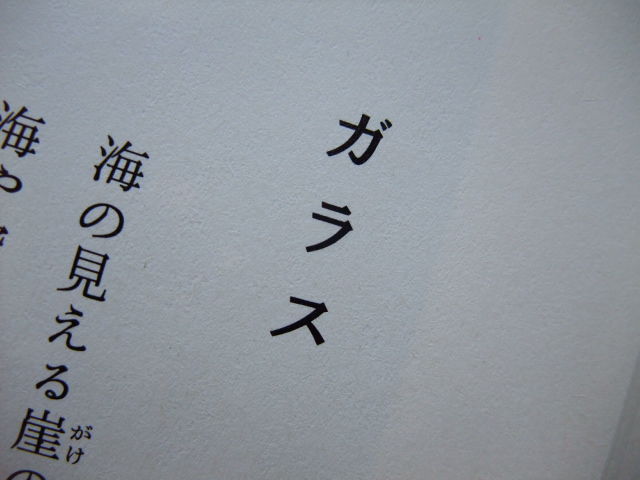 ガラス
海の見える崖の
がけ
海や